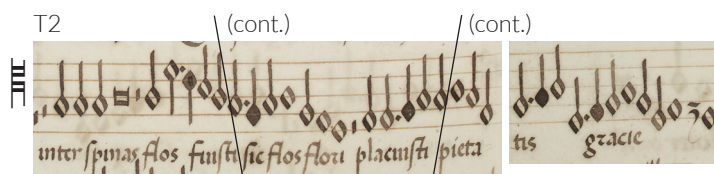 T2 (cont.) (cont.)
inter spinas flos fuisti sic flos flori placuisti pieta
tis gracie